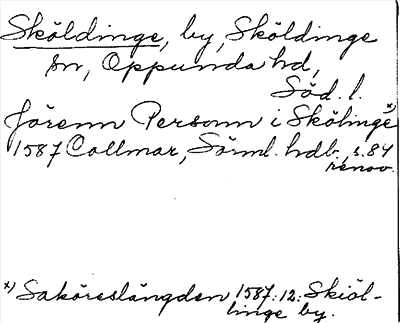 Sköldinge, by, Sköldinge
sn, Oppunda hd,
Söd. l.
Jörenn Personn i Skölinge x)
1587 Collmar, Sörml. hdb., s. 84
renov.
x) Saköreslängden 1587:12: Skiöl-
linge by.